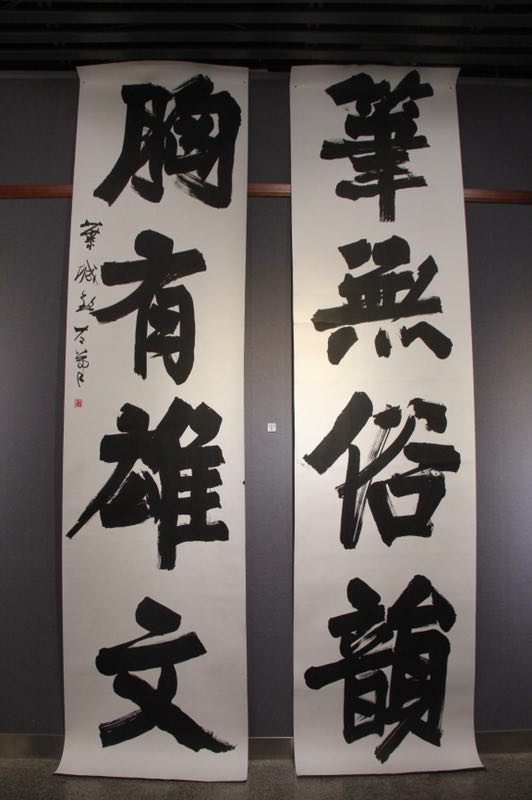 筆無俗韻
胸有雄文
葉